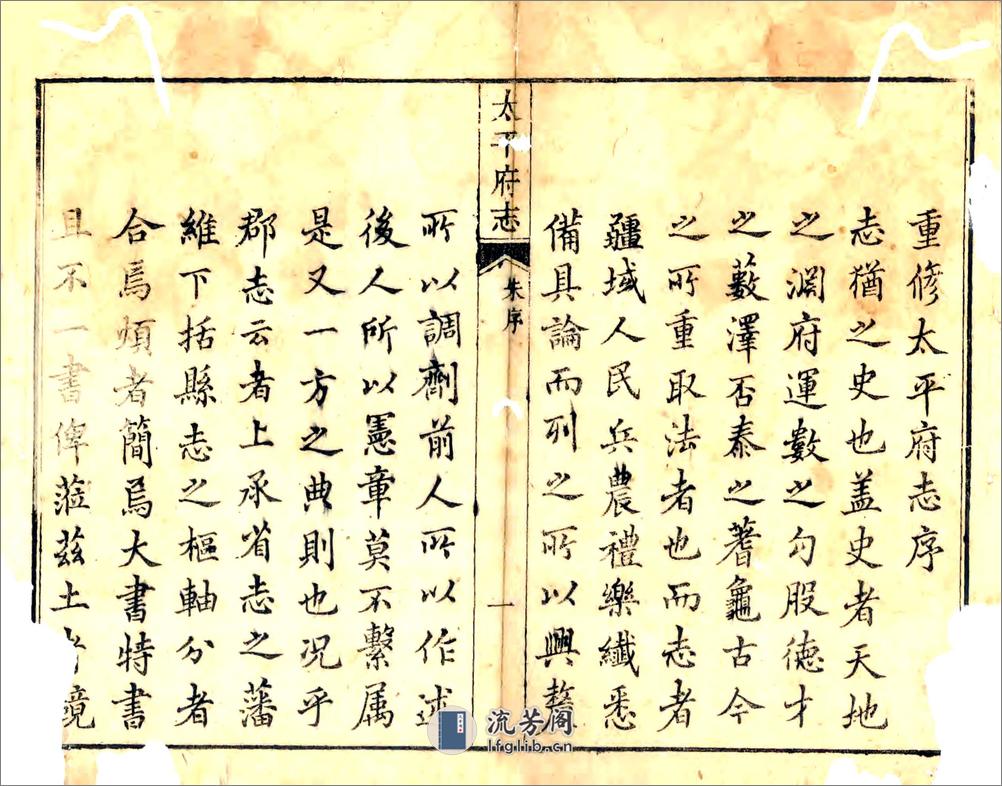 重修太平府志序
志猶之史也盖史者天地
之淵府運數之勾股德才
之藪澤否泰之蓍龜古今
之所重取法者也而志者
疆域人民兵農禮樂纖悉
備具論而列之所以興
太平府志
朱序
一
所以調劑前人所以作述
後人所以憲章莫不繫属
是又一方之典則也况乎
郡志云者上承省志之藩
維下括縣志之樞軸分者
合焉煩者簡焉大書特書
且不一書俾蒞茲土者境
流芳阁
lfglib.cn